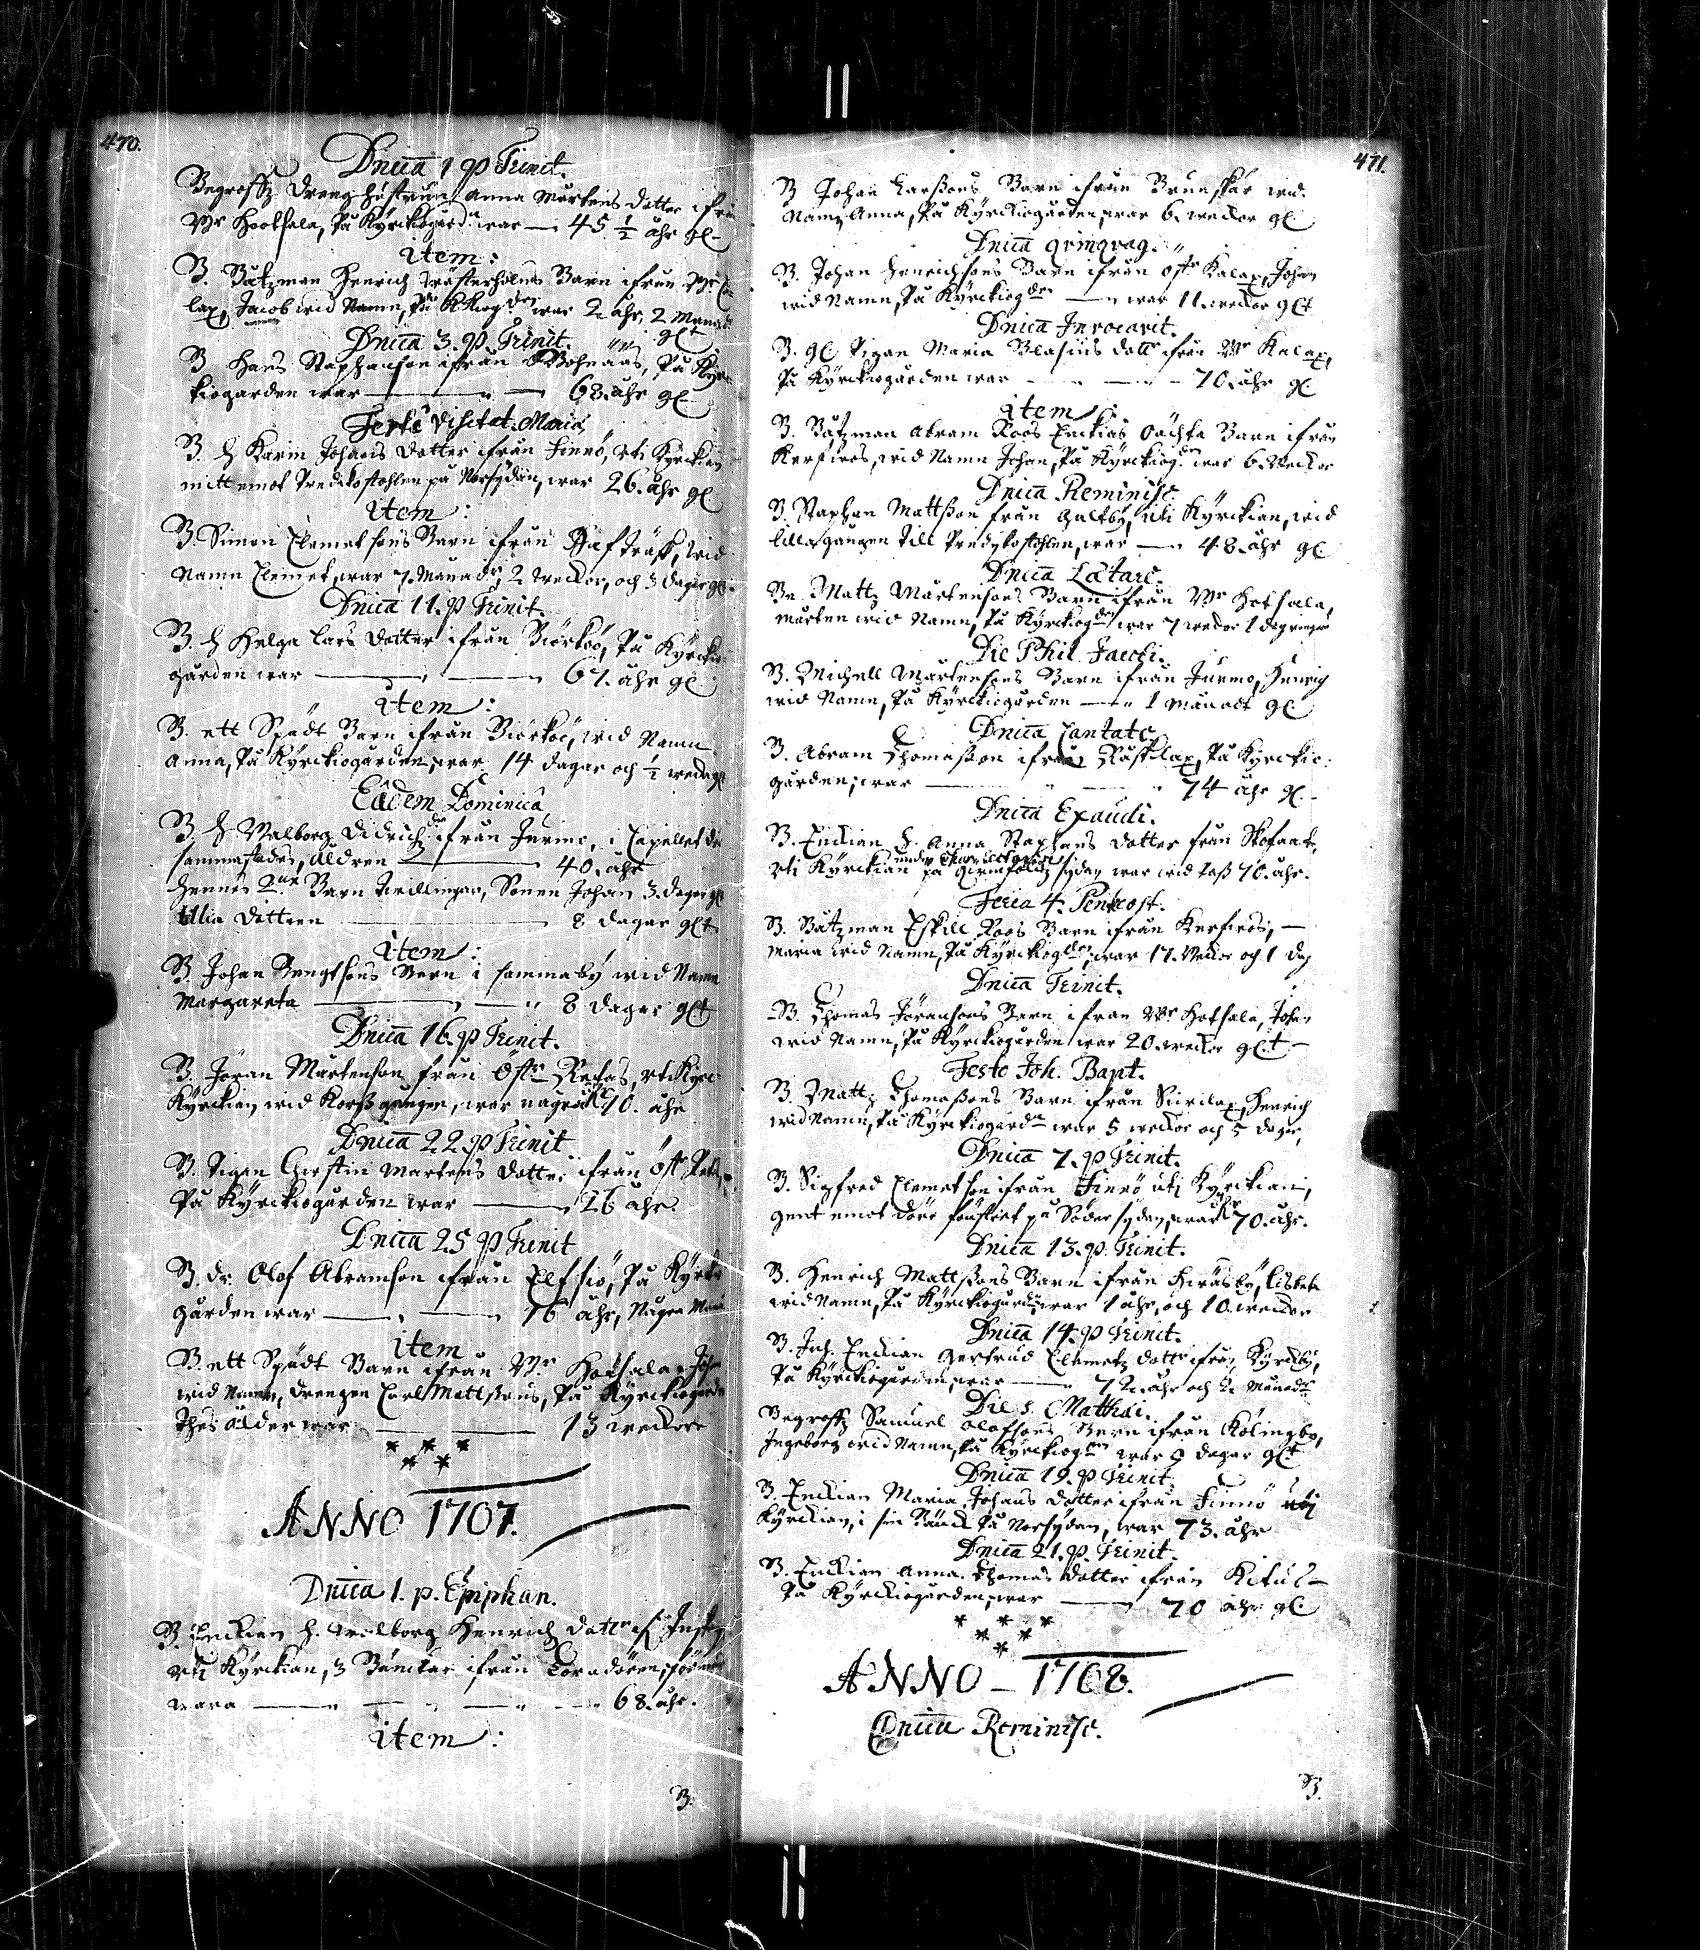 470.
Dnica 1 p Trinit.
Begroffz dreng hustrun Anna Mårtens dotter ifrå
Wr Hootsala, På Kyrckiogårdn war — 45 ½ åhr gl
item:
B. Båtzman Henrich Barn ifrån Wr
lax, Jacob wid Namn, På war 2 åhr, 2 Månad
glt
Dnica 3. p. Trinit.
B Hans Staphanson ifrån På Kyrc
kiogården war — 68. åhr gl
Festo Visitat. Mariæ
B. H Karin Johans dotter ifrån Finnö, uti Kyrckian
mitt emot Predikostohlen på Norsydan, war 26. åhr gl
item:
B. Simon Clemetsons Barn ifrån wid
Namn Clemet, war 7. Månadr, 2 weckor, och 3 dagar gl.
Dnica 11. p Trinit.
B. H Helga Lars dotter ifrån Biörkö, På Kyrckio
gården war — 67. åhr gl
item:
B. ett Spädt Barn ifrån Biörkö, wid Namn
Anna, På Kyrckiogården, war 14 dagar och ½
Eâdem Dominicâ
B. H Walborg Didrich dr ifrån Jurmo, i Capellet der
sammastädes, åldren — 40. åhr
Hennes 2ne Barn Twillingar, Sonen Johan 3. dagar gl
Ullia dottren — 8 dagar glt
item:
B. Johan Bengtsons Barn i samma by wid Namn
Margareta — 8 dagar glt
Dnica 16. p Trinit.
B. Jöran Mårtenson från Östr uti Kyrc
Kyrckian wid Korss gången, war några 70. åhr
Dnica 22. p Trinit
B. Pigan Chirstin Mårtens dotter ifrån Östr
På Kyrckiogården war — 26 åhr.
Dnica 25 p Trinit
B. dr. Olof Abramson ifrån Elfsiö, På Kyrkio
gården war — 16 åhr, Några
item
B. ett Spädt Barn ifrån Wr Hotsala,
wid Namn, drengen Carl Mattssons, På Kyrckiogården
Thes ålder war — 13 weckor
* * *
* *
ANNO 1707.
Dnica 1. p. Epiphan.
B. Enckian H. Walborg Henrich dotr
uti Kyrckian, 3 Bänckar ifrån Torndören,
wara — 68. åhr.
item:
B.
471.
B Johan Larssons Barn ifrån Brunskär wid
Namn Anna, På Kyrckiogården, war 6. weckor gl
Dnica qvinqvag.
B. Johan Henrichsons Barn ifrån Östr Kalax, Johan
wid Namn, På Kyrckiogden — war 11. weckor glt
Dnica Invocavit.
B. gl Pigan Maria Blasiis dottr ifrån Wr Kalax,
På Kyrckiogården war — 70. åhr gl
item
B. Båtzman Abram Roos Enckias oächta Barn ifrån
Kerfwes, wid Namn Johan, På Kyrckiogdn war 6. Weckor
Dnica Reminisc.
B. Staphan Mattsson från Galtby, uti Kyrckian, wid
lilla gången till Predykostohlen, war — 48. åhr gl
Dnica Lætare.
Br. Mattz Mårtensons Barn ifrån Wr Hotsala,
Mårten wid Namn, På Kyrckiogdn war 7 weckor 1 dag
Die Phil. Jacobi.
B. Michell Mårtensons Barn ifrån Jurmo, Henrich
wid Namn, På Kyrckiogården — 1 Månadt gl
Dnica Cantate
B. Abram Thomasson ifrån På Kyrckio
gården, war — 74 åhr gl.
Dnica Exaudi.
B. Enckian H. Anna Staphans dotter från
uti Kyrckian på sydan war wid pass 70. åhr.
Feria 4. Pentecost.
B. Båtzman Eskill Roos Barn ifrån Kerfwes, —
Maria wid Namn, På Kyrckiogden, war 17. Weckor och 1 dag
Dnica Trinit.
B. Thomas Jöransons Barn ifrån Wr Hotsala, Johan
wid Namn, På Kyrckiogården war 20. weckor glt
Festo Joh. Bapt.
B. Mattz Thomassons Barn ifrån Henrich
wid Namn, På Kyrckiogårdn war 5 weckor och 5 dagar,
Dnica 7. p Trinit.
B. Sigfred Clemetson ifrån Finnö uti Kyrckian,
gent emot döre fönstret på Södersydan, war 70. åhr.
Dnica 13. p. Trinit.
B. Henrich Mattssons Barn ifrån Lisbeta
wid Namn, På Kyrckiogårdn, war 1 åhr, och 10. weckor
Dnica 14. p Trinit.
B. Inh. Enckian Gertrud Clemetz dottr ifrån Kyrckby,
På Kyrckiogården, war — 72. åhr och 2 Månadr
Die s. Matthæi.
Begroffz Samuel Olofsons Barn ifrån Kålingby,
Ingeborg wid Namn, På Kyrckiogdn war 9 dagar glt
Dnica 19. p Trinit
B. Enckian Maria Johans dotter ifrån Finnö uti
Kyrckian, i sin Bänck På Norsydan, war 73. åhr
Dnica 21. p. Trinit.
B. Enckian Anna Thomas dotter ifrån
På Kyrckiogården, war — 70 åhr gl.
* * *
* *
*
ANNO - 1708.
Dnica Reminisc.
B.